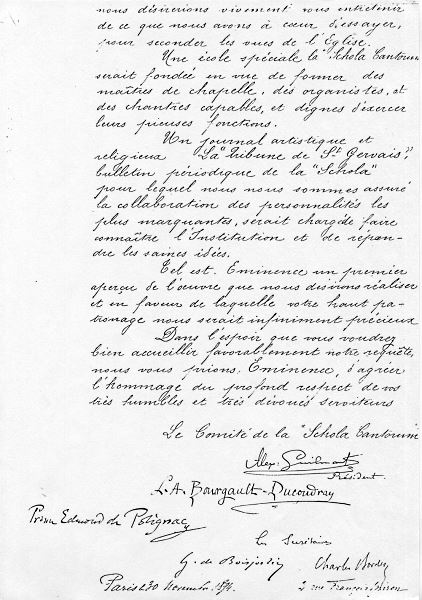 nous désirerions vivement vous entretenir
de ce que nous avons à cœur d'essayer,
pour seconder les vues de l'Eglise.
Une école spéciale la "Schola Cantorum
serait fondée en vue de former des
maîtres de chapelle, des organistes, et
des chantres capables, et dignes d'exercer
leurs pieuses fonctions.
Un journal artistique et
religieux "La Tribune de St Gervais",
bulletin périodique de la "Schola"
pour lequel nous nous sommes assuré
la collaboration des personnalités les
plus marquantes, serait chargé de faire
connaître l'Institution et de répan-
dre les saines idées.
Tel est, Eminence un premier
aperçu de l'œuvre que nous désirons réaliser
et en faveur de laquelle votre haut pa-
tronage nous serait infiniment précieux
Dans l'espoir que vous voudrez
bien accueillir favorablement notre requête,
nous vous prions, Eminence, d'agréer
l'hommage du profond respect de vos
très humbles et très dévoués serviteurs
Le Comité de la "Schola Cantorum
Alex. Guilmant
Président
L.A. Bourgault-Ducoudray
Prince Edmond de Polignac
Le Secrétaire
G. de Boisjoslin Charles Bordes
Paris 30 Novembre 1894. 2 rue François Miron